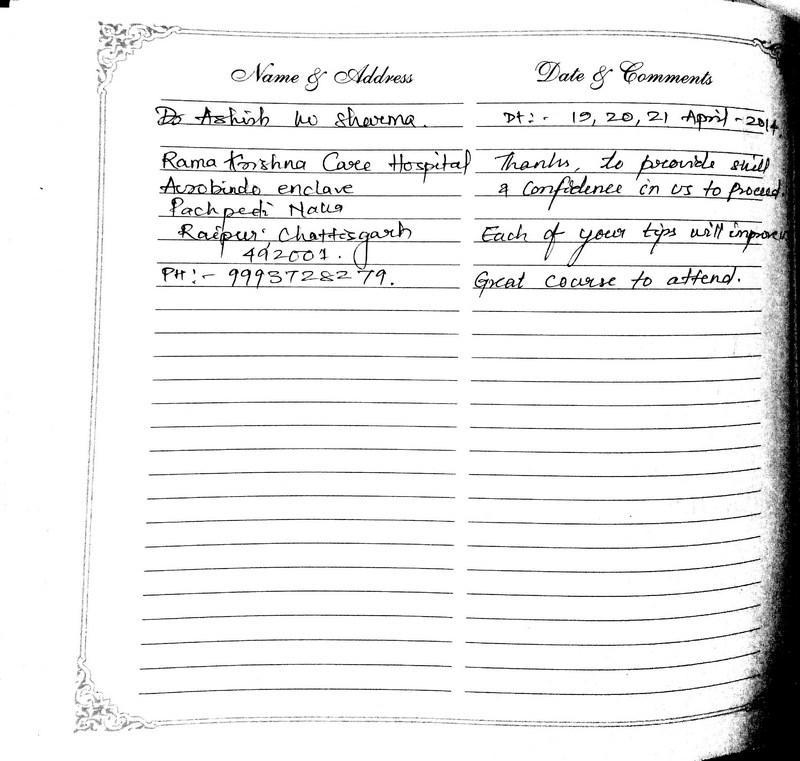 Name & Address
Dr Ashish kr Sharma.
Rama Krishna Care Hospital
Aurobindo enclave
Pachpedi Naka
Raipur, Chattisgarh
492001.
PH:- 9993728279.
Date & Comments
Dt:- 19, 20, 21 April-2014
Thanks, to provide skill
& Confidence in us to proceed.
Each of your tips will improve
Great course to attend.